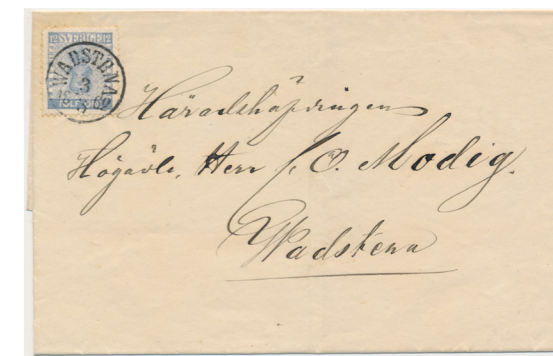 12 SVERIGE 12
WADSTENA
3
TOLF ÖRE
Häradshöfdingen
Högädle, Herr C. O. Modig.
Wadstena